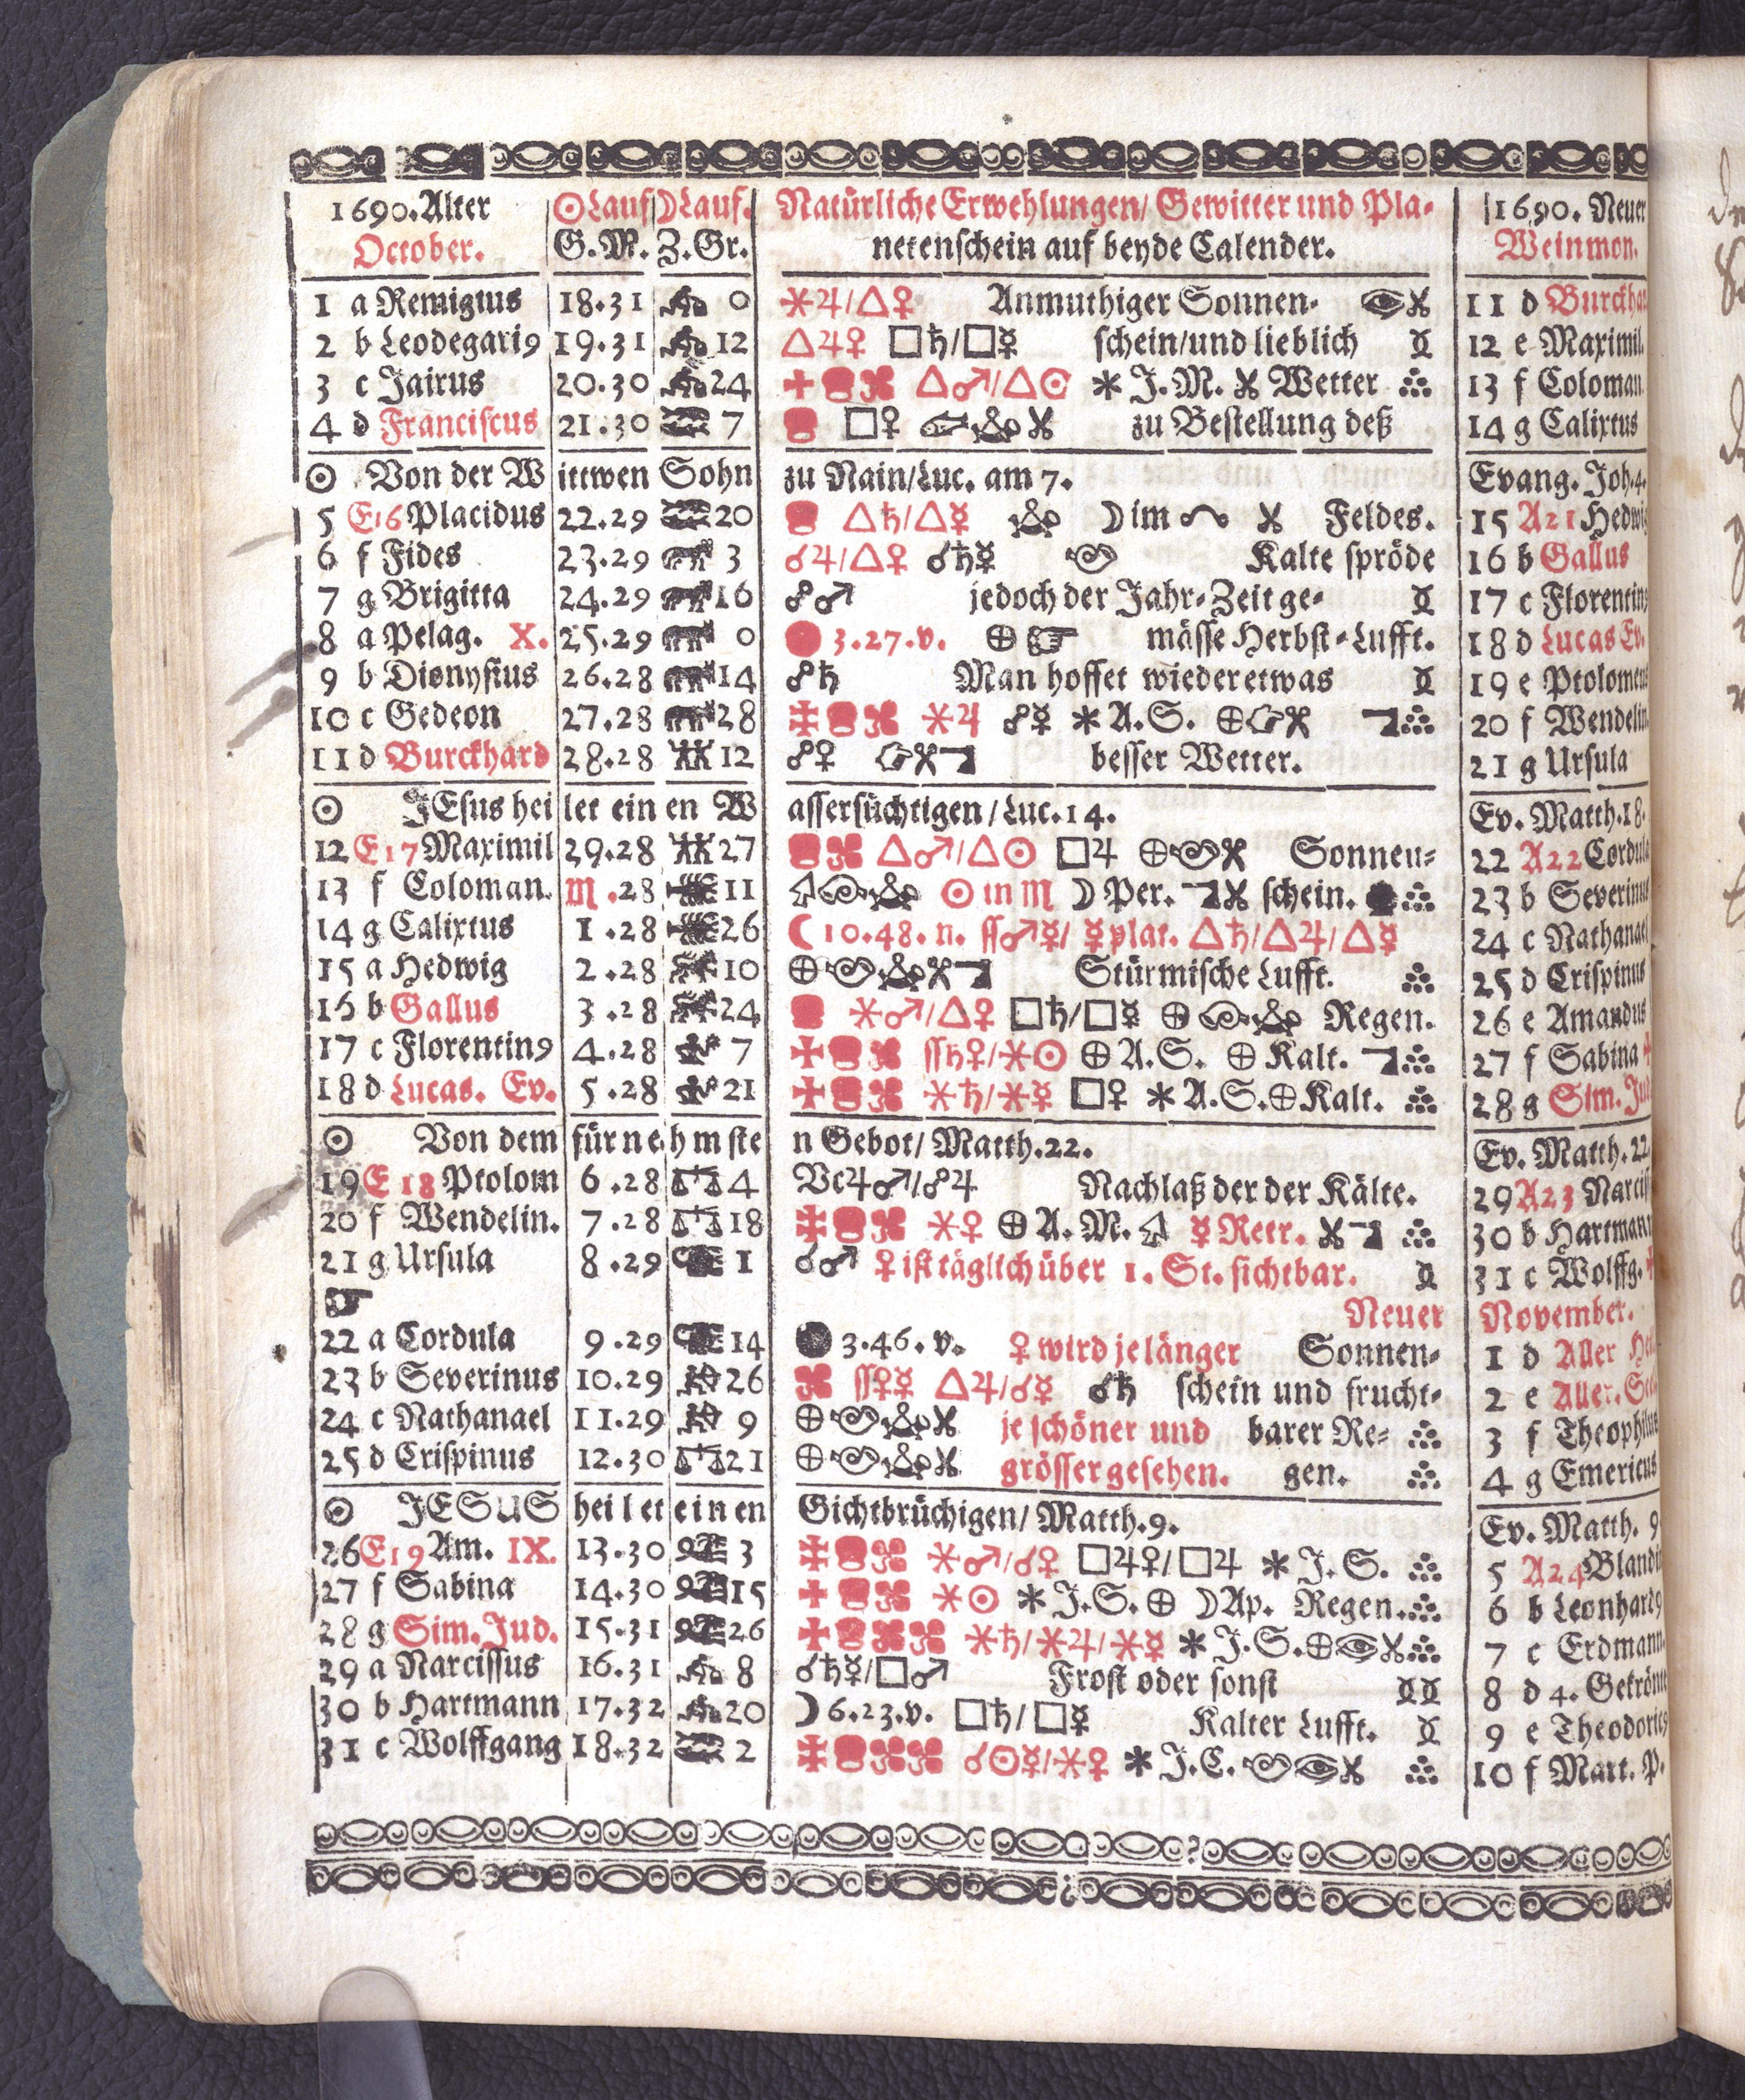 1690. Alter ☉Lauf ☽Lauf. Natürliche Erwehlungen/ Gewitter und Pla- 1690. Neuer
October. G. M. Z. Gr. netenschein auf beyde Calender. Weinmon.
1 a Remigius 18.31 0 ⚹♃/△♀ Anmuthiger Sonnen- 11 d
2 b Leodegari9 19.31 12 △♃♀ □♄/□☿ schein/und lieblich 12 e Maximil.
3 c Jairus 20.30 24 △♂/△☉ * J. M. Wetter 13 f Coloman.
4 d Franciscus 21.30 7 □♀ zu Bestellung deß 14 g Calixtus
☉ Von der Wittwen Sohn zu Nain/Luc. am 7. Evang. Joh. 4.
5 E16 Placidus 22.29 20 △♄/△☿ ☽ im Feldes. 15 A21 Hedwig
6 f Fides 23.29 3 ☌♃/△♀ ☌♄☿ Kalte spröde 16 b Gallus
7 g Brigitta 24.29 16 ☍♂ jedoch der Jahr-Zeit ge- 17 c Florentin9
8 a Pelag. X. 25.29 0 3.27.v. ⊕ mässe Herbst-Lufft. 18 d Lucas Ev.
9 b Dionysius 26.28 14 ☍♄ Man hoffet wieder etwas 19 e Ptolomeus
10 c Gedeon 27.28 28 ⚹♃ ☍☿ * A. S. ⊕ 20 f Wendelin
11 d Burckhard 28.28 12 ☍♀ besser Wetter. 21 g Ursula
☉ JEsus heilet einen Wassersüchtigen/Luc. 14. Ev. Matth. 18.
12 E17 Maximil 29.28 27 △♂/△☉ □♃ ⊕ Sonnen- 22 A22 Cordula
13 f Coloman. ♏ .28 11 ☉ in ♏ ☽ Per. schein. 23 b Severinus
14 g Calixtus 1 .28 26 ☾ 10.48. n. ss♂☿/ ☿ plat. △♄/△♃/△☿ 24 c Nathanael
15 a Hedwig 2 .28 10 ⊕ Stürmische Lufft. 25 d Crispinus
16 b Gallus 3 .28 24 ⚹♂/△♀ □♄/□☿ ⊕ Regen. 26 e Amandus
17 c Florentin9 4 .28 7 ss♄♀/⚹☉ ⊕ A. S. ⊕ Kalt. 27 f Sabina
18 d Lucas. Ev. 5 .28 21 ⚹♄/⚹☿ □♀ * A. S. ⊕ Kalt. 28 g Sim. Jud
☉ Von dem fürnehmsten Gebot/ Matth. 22. Ev. Matth. 22
19 E18 Ptolom 6 .28 4 Vc♃♂/☍♃ Nachlaß der der Kälte. 29 A23 Narciss
20 f Wendelin. 7 .28 18 ⚹♀ ⊕ A. M. ☿ Retr. 30 b Hartmann
21 g Ursula 8 .29 1 ☌♂ ♀ ist täglich über 1. St. sichtbar. 31 c Wolffg.
☞ Neuer November.
22 a Cordula 9 .29 14 3.46. v. ♀ wird je länger Sonnen- 1 d Aller
23 b Severinus 10.29 26 ss♀☿ △♃/☌☿ ☌♄ schein und frucht- 2 e Aller.
24 c Nathanael 11.29 9 ⊕ je schöner und barer Re- 3 f Theophilus
25 d Crispinus 12.30 21 ⊕ grösser gesehen. gen. 4 g Emericus
☉ JESUS heilet einen Gichtbrüchigen/ Matth. 9. Ev. Matth. 9
26 E19 Am. IX. 13.30 3 ⚹♂/☌♀ □♃♀/□♃ * J. S. 5 A24
27 f Sabina 14.30 15 ⚹☉ * J. S. ⊕ ☽ Ap. Regen. 6 b Leonhard9
28 g Sim. Jud. 15.31 26 ⚹♄/⚹♃/⚹☿ * J. S. ⊕ 7 c Erdmann.
29 a Narcissus 16.31 8 ☌♄☿/□♂ Frost oder sonst 8 d 4. Gekrönte
30 b Hartmann 17.32 20 ☽ 6.23. v. □♄/□☿ Kalter Lufft. 9 e Theodoric9
31 c Wolffgang 18.32 2 ☌☉☿/⚹♀ * J. C. 10 f Mart. P.